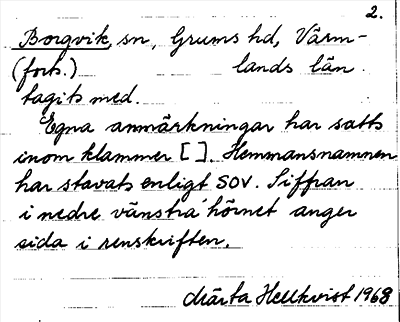 2.
Borgvik, sn, Grums hd, Värm-
(forts.) lands län.
tagits med.
Egna anmärkningar har satts
inom klammer []. Hemmansnamnen
har stavats enligt SOV. Siffran
i nedre vänstra hörnet anger
sida i renskriften.
Märta Hellkvist 1968